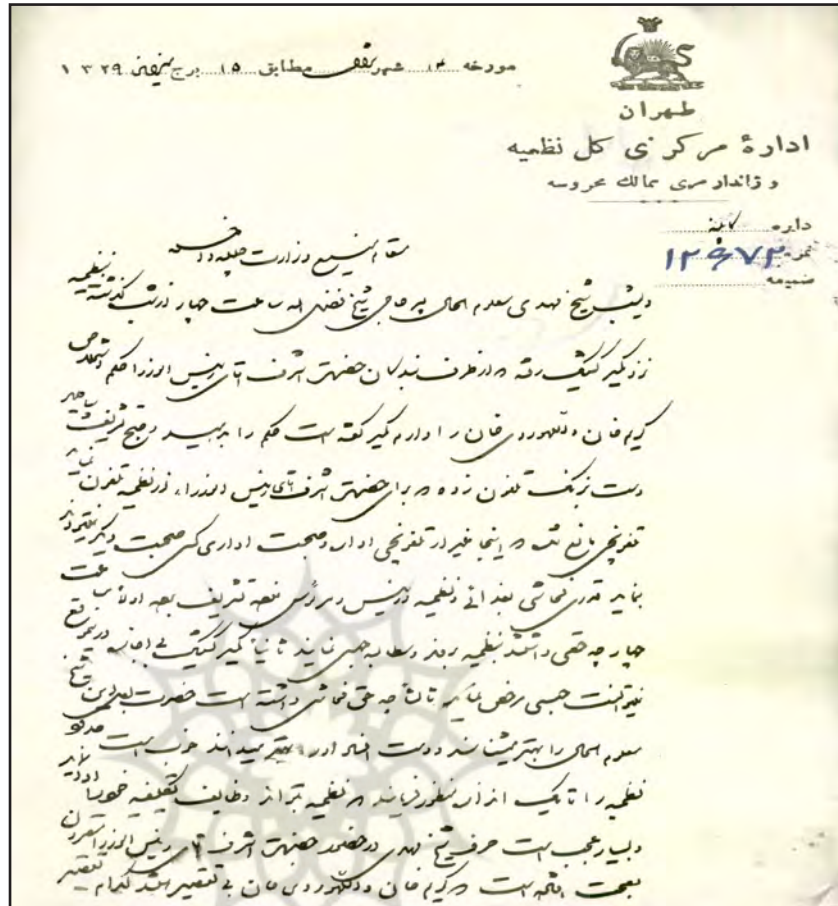 مورخه ۱۳ شهر شوال مطابق ۱۵ برج میزان ۱۳۲۹
طهران
ادارهٔ مرکزی کل نظمیه
و ژاندارمری ممالک محروسه
دایره کابینه
نمره ۱۲۶۷۲
ضمیمه
مقام منیع وزارت جلیله داخله
دیشب شیخ مهدی معلوم الحال پسر حاجی شیخ فضل اله ساعت چهار از شب گذشته بنظمیه
نزد کمیر کشیک رفته که از طرف بندگان حضرت اشرف آقای رئیس الوزرا حکم
کریم خان و اللهوردی خان را دارم کمیر گفته است حکم را بدهید
دست بزنگ تلفون زده که برای حضرت اشرف آقای رئیس الوزراء از نظمیه تلفون نماید
تلفونچی مانع شده که اینجا غیر از تلفونچی اداره و صحبت اداری کسی صحبت دیگر نمیتواند
بنماید قدری فحاشی بعد از نظمیه و رئیس و مرئوس نموده تشریف برده اولا ساعت
چهار چه حقی داشتند بنظمیه بروند و مطالبه حبسی نمایند ثانیا کمیر کشیک بی اجازه
نمیتوانست حبسی مرخص نماید ثالثا چه حق فحاشی داشته است حضرت
معلوم الحال را بهتر میشناسند و دست فساد او را بهتر میدانند خوب است
نظمیه را تا یک اندازه منظور فرمایند که نظمیه بتواند وظایف تکلیفیه خود را
و بسیار عجب است حرف شیخ مهدی در حضور حضرت اشرف آقای رئیس الوزرا مقرون
بصحت است که کریم خان و اللهوردی خان بی تقصیر باشند کدام تقصیر